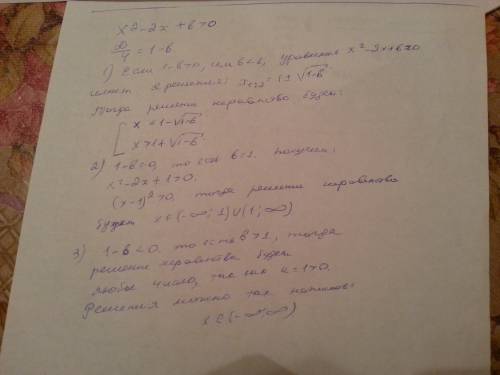 x²-2x+b>0
D/4=1-b
1) Если 1-b>0, b<1, уравнение x²-2x+b=0
имеет 2 решения: x₁,₂=1±√1-b
Тогда решение неравенства будет:
[ x<1-√1-b
x>1+√1-b
2) 1-b=0, то есть b=1. получим:
x²-2x+1>0.
(x-1)²>0, тогда решение неравенства
будет x∈(-∞;1)∪(1;∞)
3) 1-b<0, то есть b>1, тогда
решение неравенства будет
любое число, так как a=1>0.
Решения можно так написать:
x∈(-∞;∞)